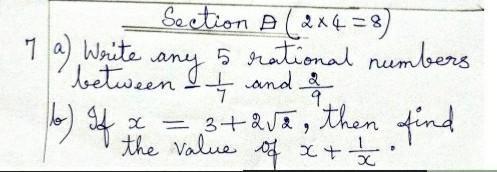 Section D (2×4=8)
7 a) Write any 5 rational numbers
between -1/7 and 2/9
b) If x = 3+2√2, then find
the value of x + 1/x.